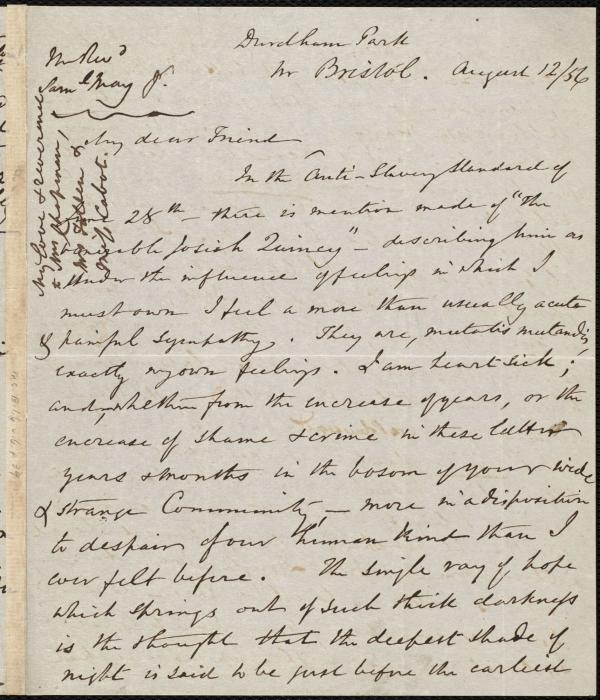 Durdham Park
nr Bristol. August 12/56
To Revd
Saml May Jr.
My dear Friend
In the Anti-Slavery Standard of
June 28th – there is mention made of "the
venerable Josiah Quincy" – describing him as
under the influence of feelings in which I
must own I feel a more than usually acute
& painful sympathy. They are, mutatis mutandis,
exactly my own feelings. I am heart sick;
and, whether from the increase of years, or the
encrease of shame & crime in these latter
years & months in the bosom of your wide
& strange Community, – more in a disposition
to despair of our human kind than I
ever felt before. The single ray of hope
which springs out of such thick darkness
is the thought that the deepest shade of
night is said to be just before the earliest
My love & reverence
to Mrs Chapman,
Mrs Follen &
Miss Cabot.